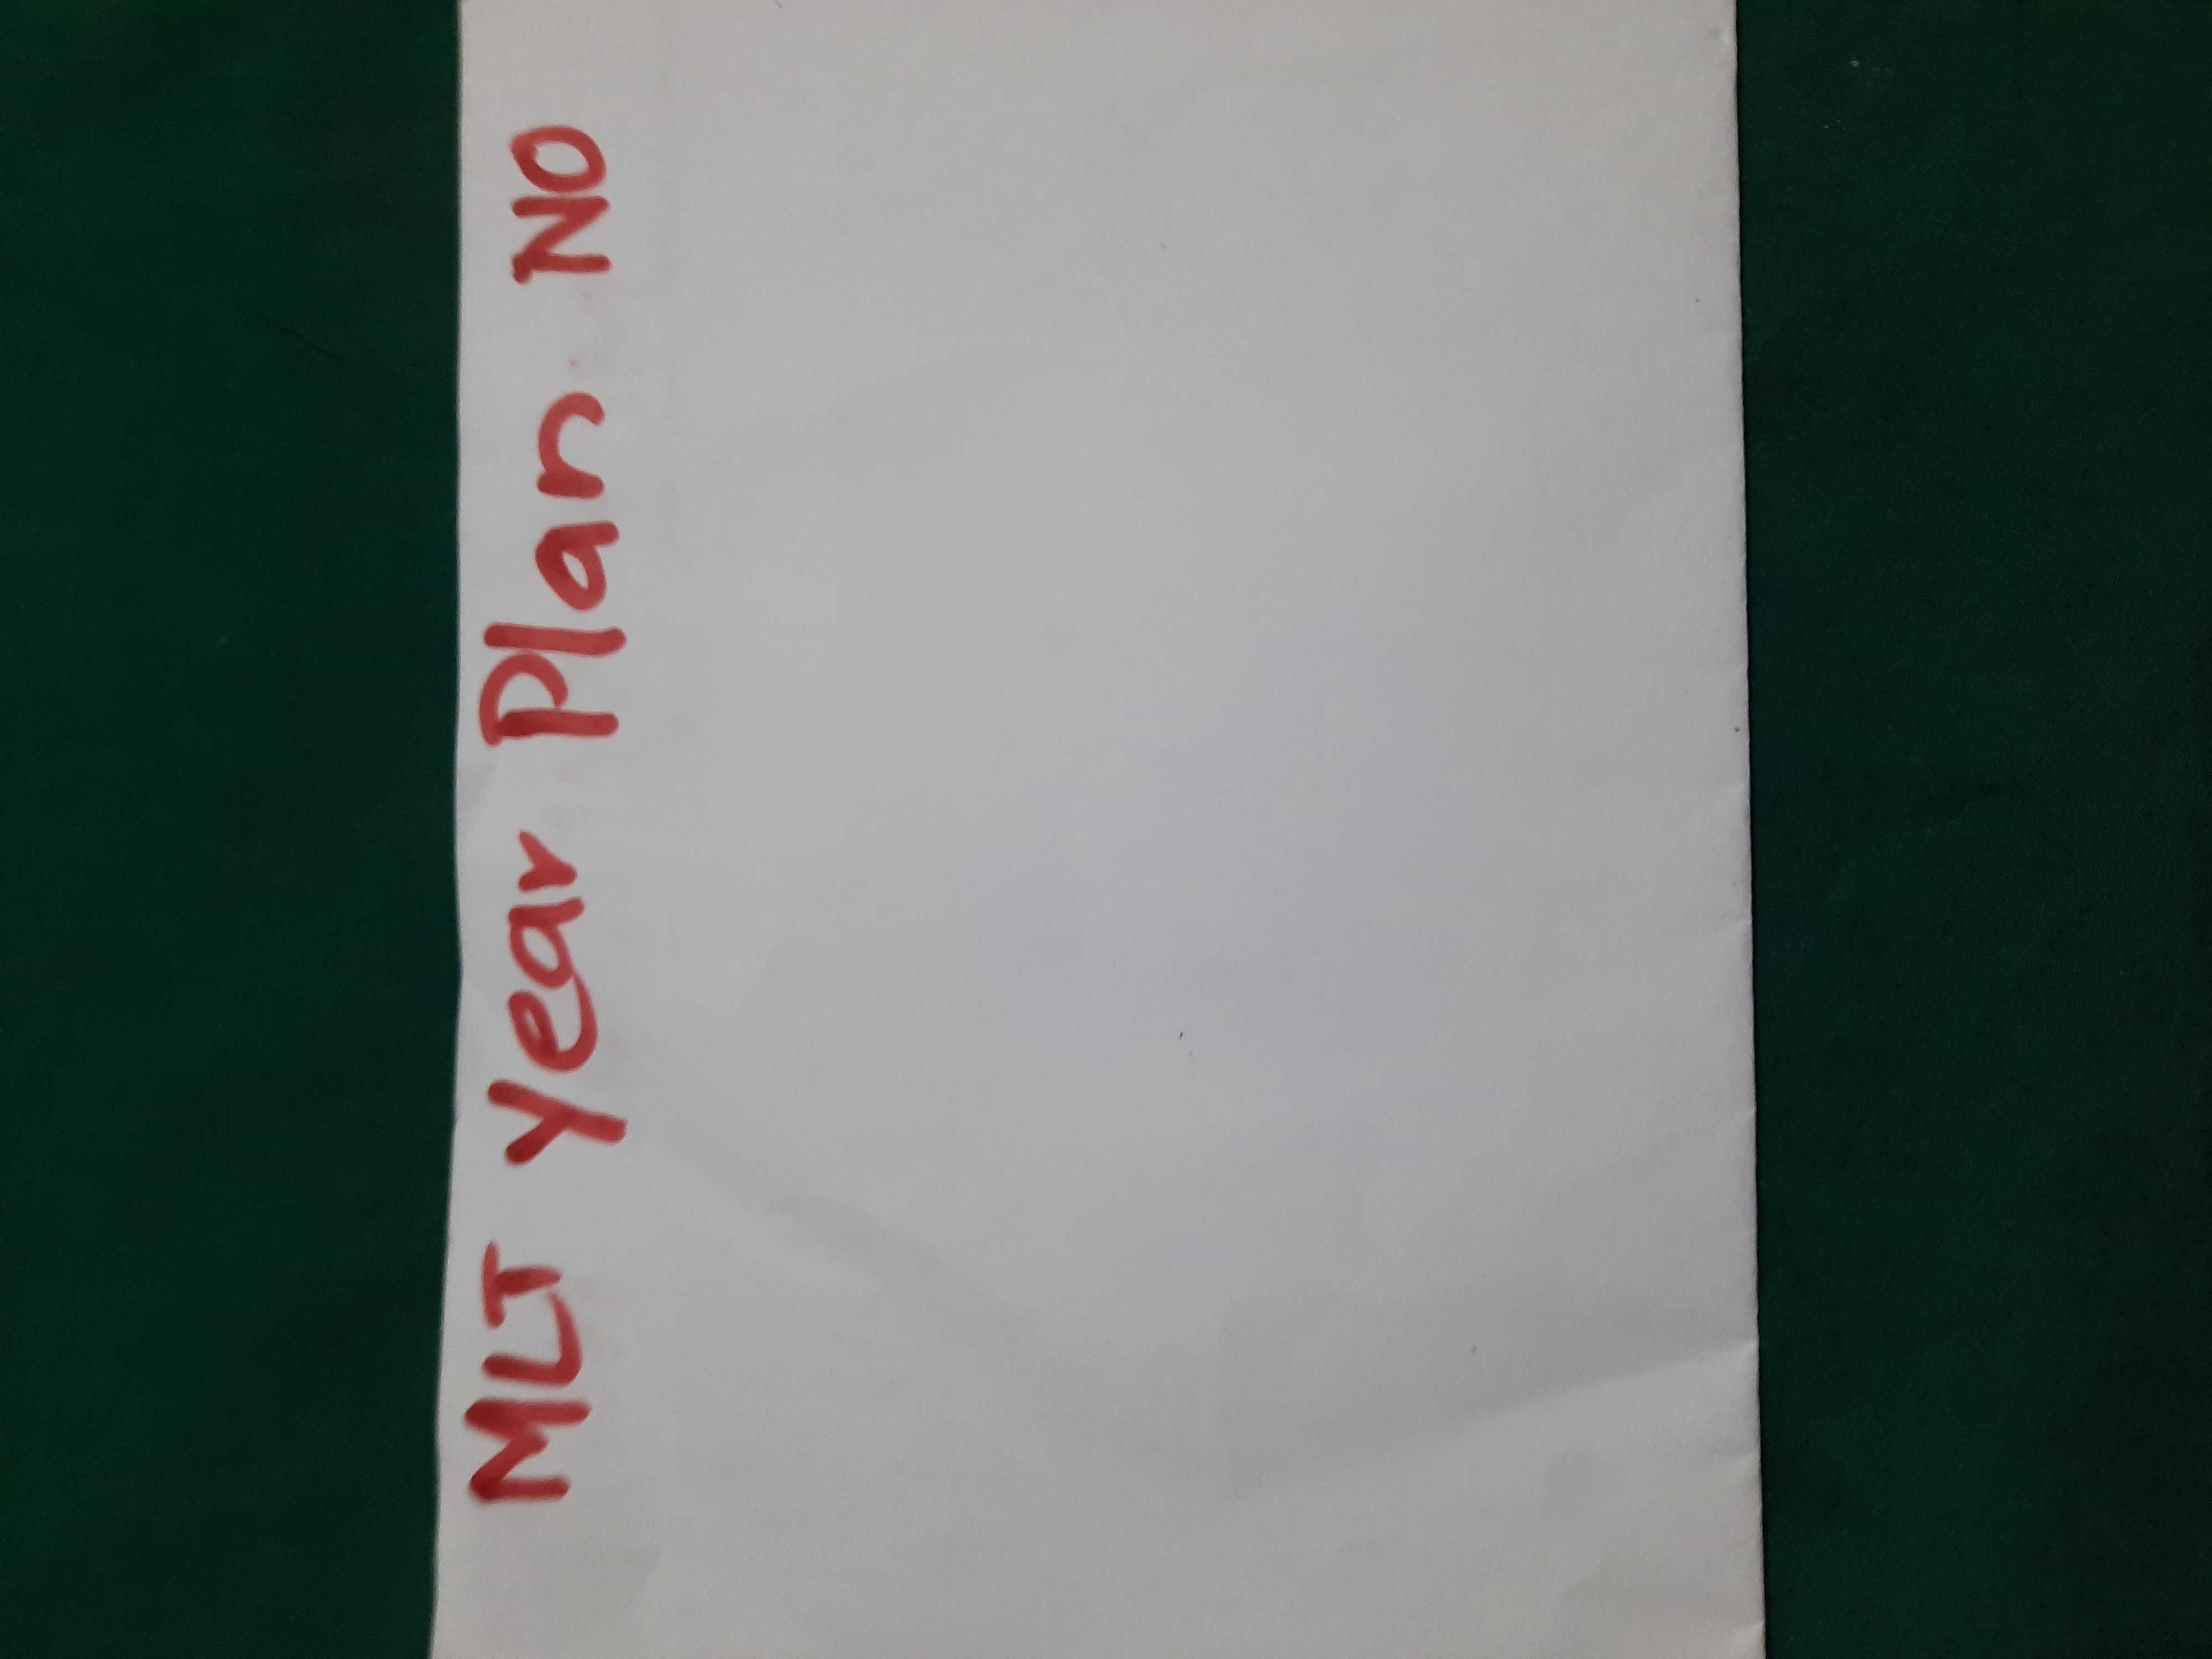 MLT year Plan NO